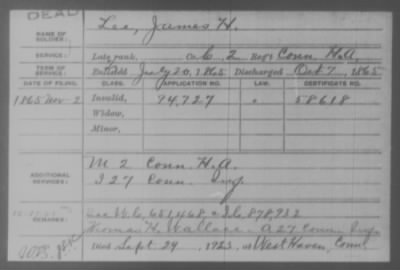 DEAD
NAME OF SOLDIER: Lee, James H.
SERVICE: Late rank, Co. C, 2 Reg't Conn. H.A.
TERM OF SERVICE: Enlisted July 20, 1865 Discharged Oct 7, 1865
DATE OF FILING. CLASS. APPLICATION NO. LAW. CERTIFICATE NO.
1865 Nov 2 Invalid, 94,727 " 58618
Widow,
Minor,
ADDITIONAL SERVICES: M 2 Conn. H.A.
I 27 Conn. Inf.
REMARKS: 651,468, 878,932
Thomas H. Wallace - A 27 Conn. Inf.
Died Sept. 29, 1923, at West Haven, Conn.